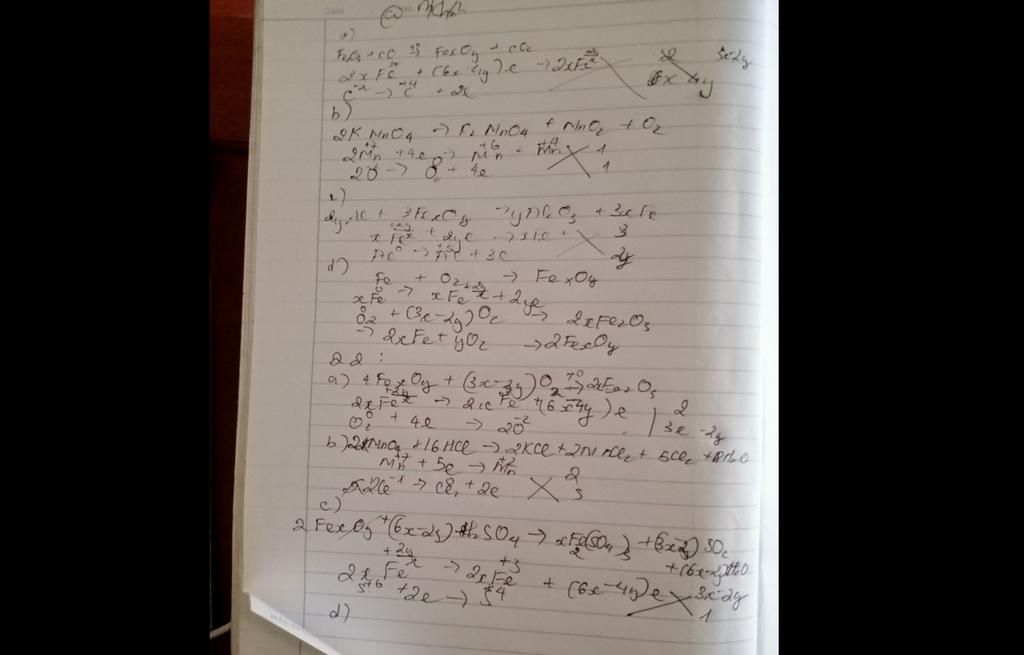 a)
Fe₂O₃ + CO → FexOy + CO₂
2xFe + (6x-4y)e → 2xFe 2 3x-2y
C → C + 2e 6x-4y
b)
2KMnO₄ → K₂MnO₄ + MnO₂ + O₂
2Mn⁺⁷ + 4e → Mn⁺⁶ + Mn⁺⁴ 1
2O → O₂ + 4e 1
c)
2yAl + 3FexOy → yAl₂O₃ + 3xFe
xFe + 2ye → xFe 3
Al⁰ → Al⁺³ + 3e 2y
d)
Fe + O₂ → FexOy
xFe⁰ → xFe + 2ye
O₂ + (3x-2y)O₂ → 2xFe₂O₃
→ 2xFe + yO₂ → 2FexOy
22:
a) 4FexOy + (3x-2y)O₂ → 2xFe₂O₃
2xFe → 2xFe + (6x-4y)e 2
O₂⁰ + 4e → 2O⁻² 3x-2y
b) 2KMnO₄ + 16HCl → 2KCl + 2MnCl₂ + 5Cl₂ + 8H₂O
Mn⁺⁷ + 5e → Mn⁺² 2
2Cl⁻¹ → Cl₂ + 2e 5
c)
2FexOy + (6x-2y)H₂SO₄ → xFe₂(SO₄)₃ + (3x-2y)SO₂
+ (6x-2y)H₂O
2xFe → 2xFe⁺³ + (6x-4y)e 3x-2y
S⁺⁶ + 2e → S⁺⁴ 1
d)